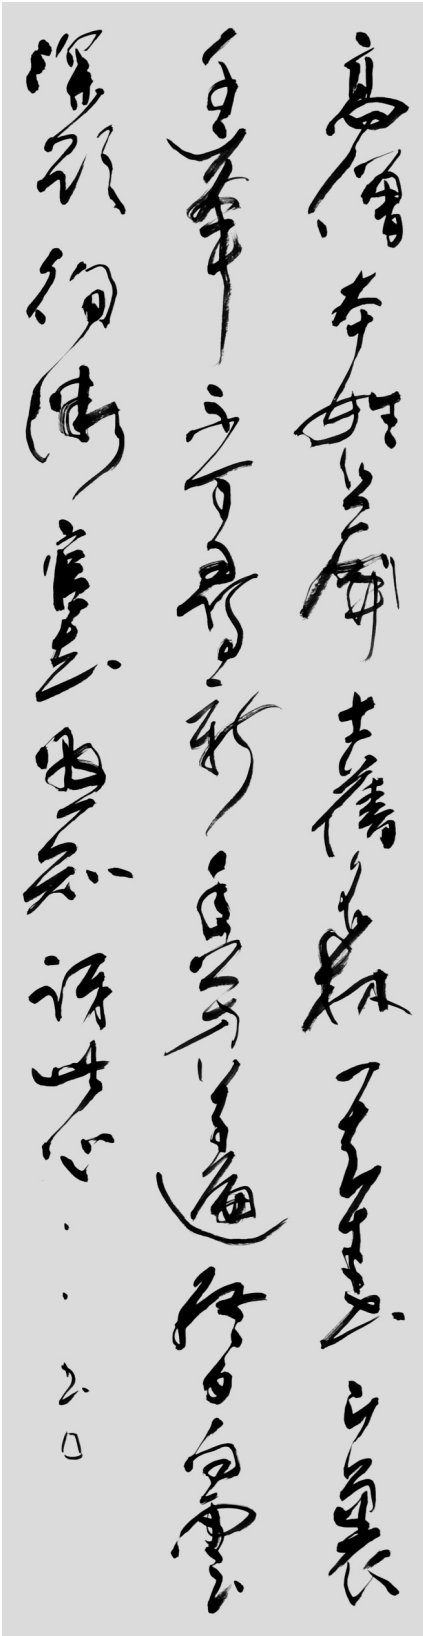 高僧本姓竺開士舊名林一去春山裏
千峯不可尋新年芳草遍終日白雲
深欲徇微官去懸知訝此心